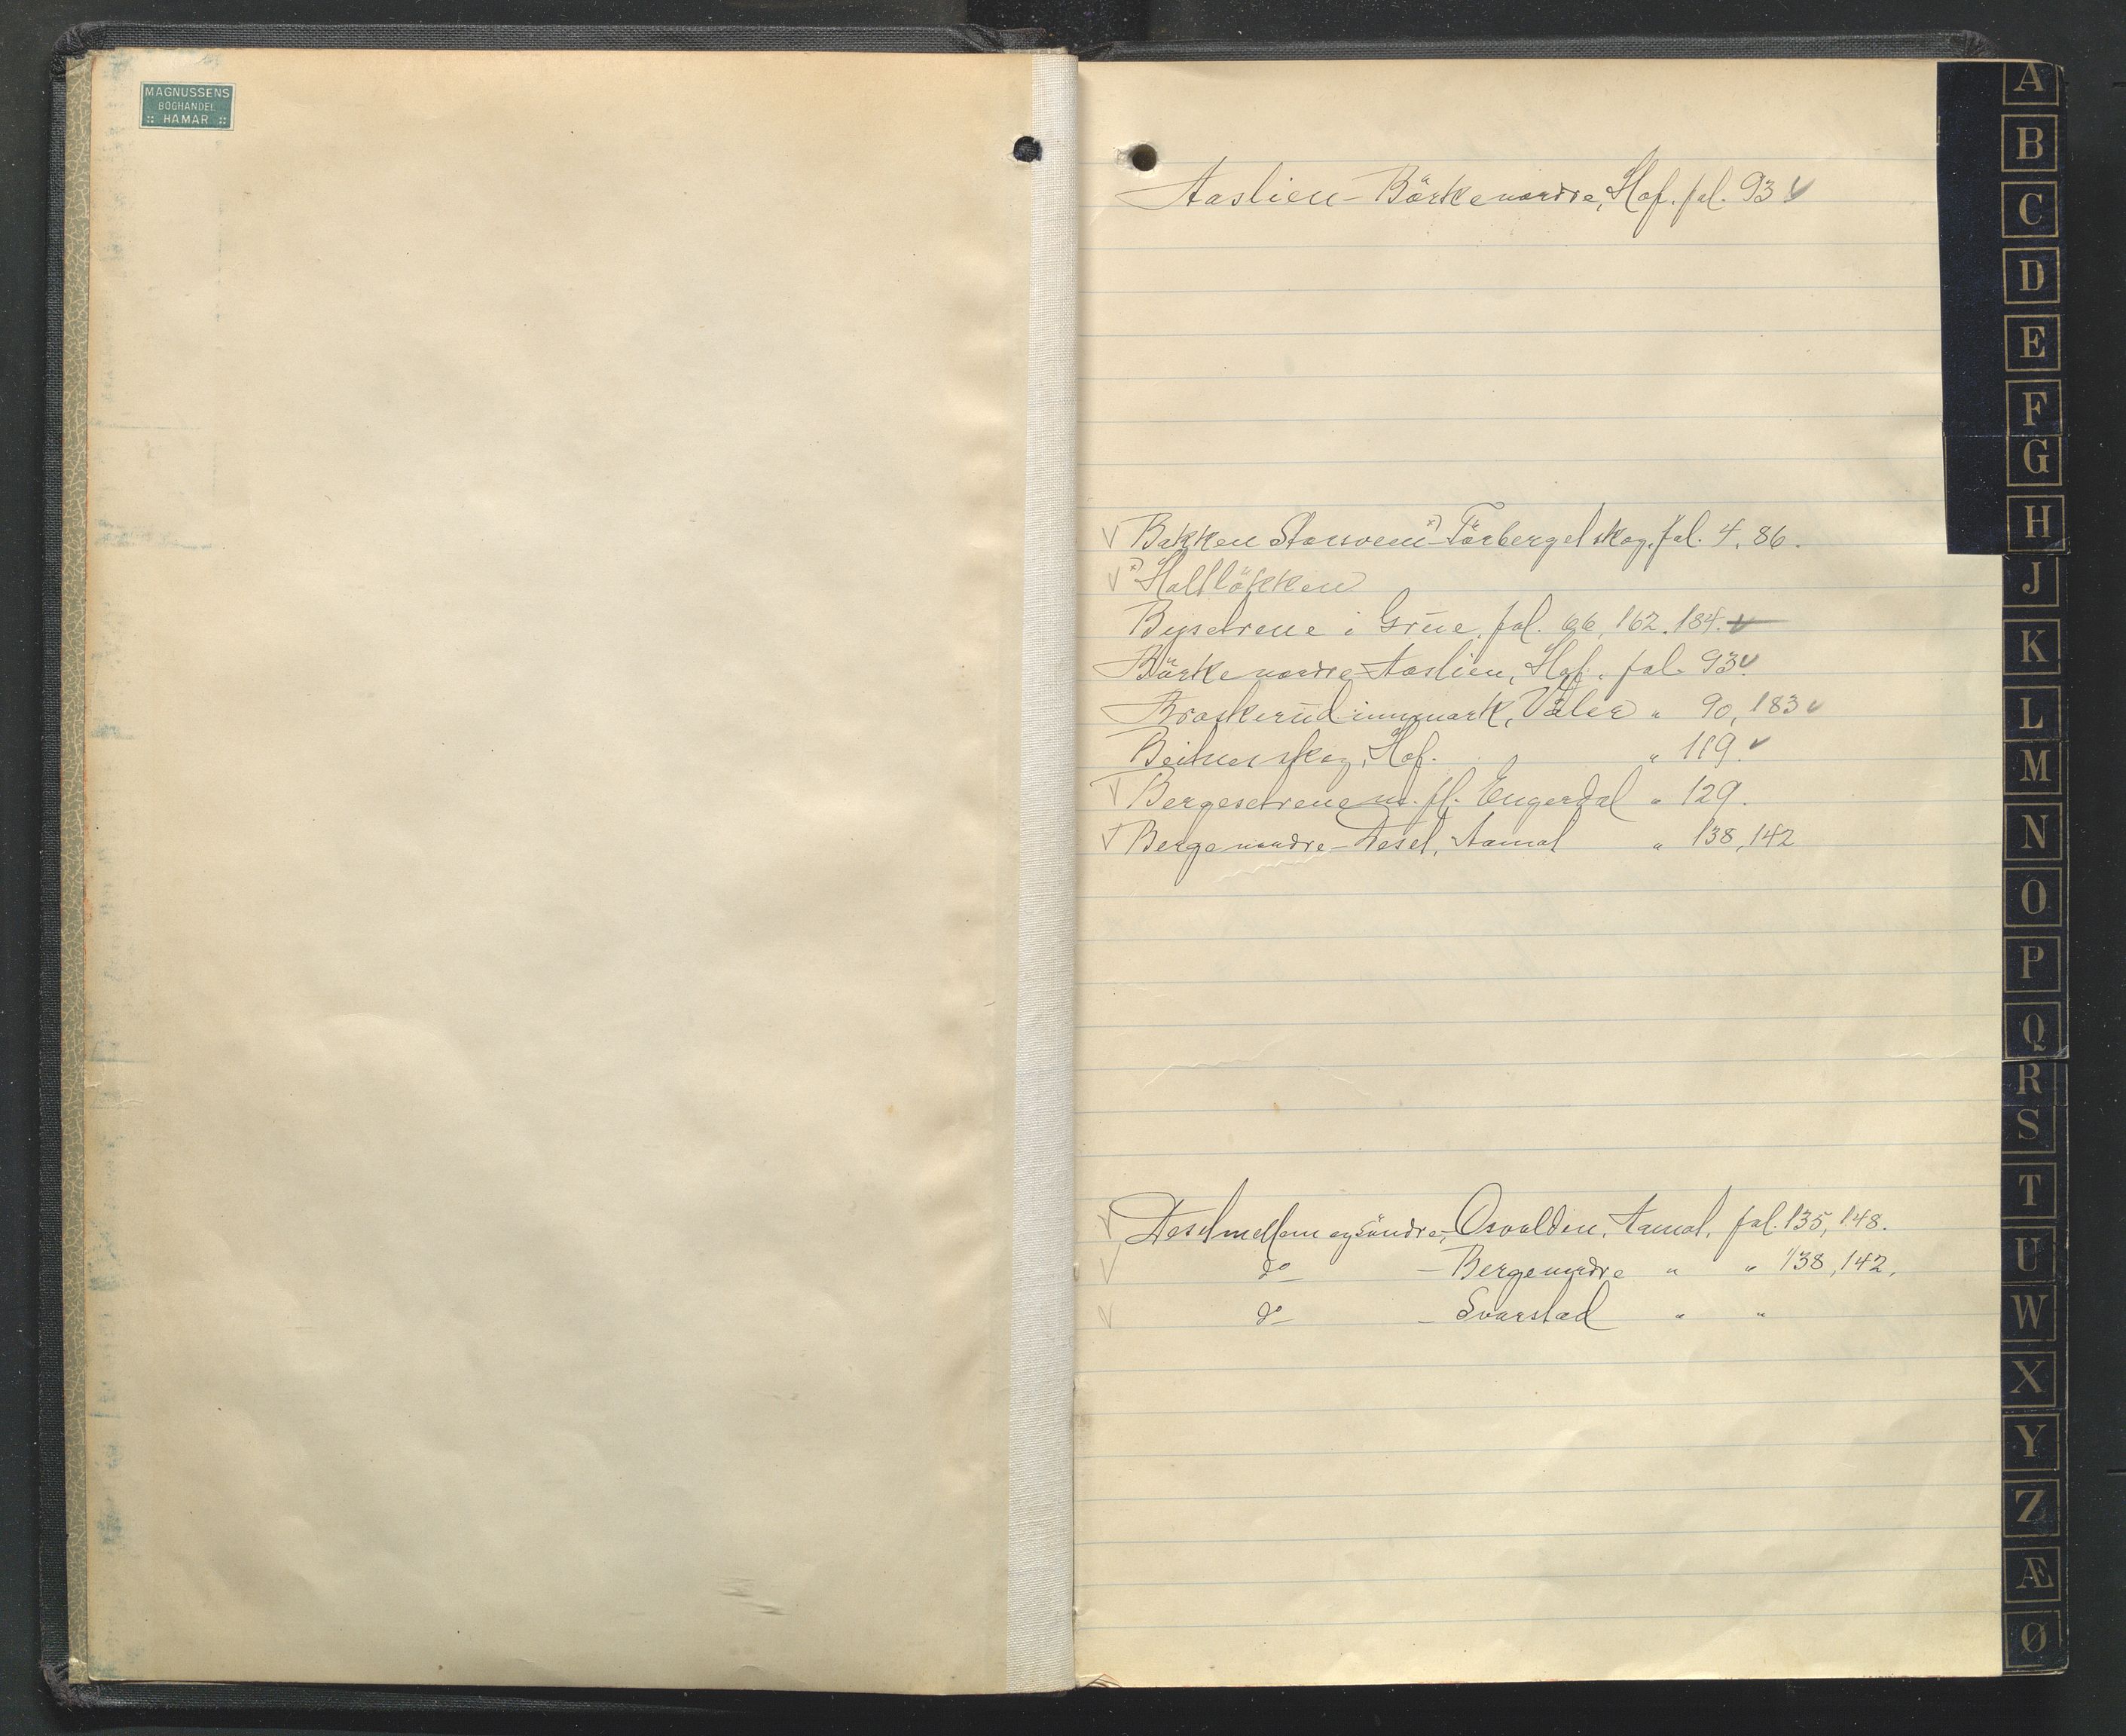 MAGNUSSENS
BOGHANDEL
:: HAMAR ::
Aaslien - Börke nordre, Hof. fol. 93 ✓
✓ Bakken Storsveen x) Törberget skog, fol. 4, 86.
✓ x) Holtlökken
Bysetrene i Grue, fol. 66, 162. 184. ✓
Börke nordre - Aaslien, Hof. fol. 93 ✓
Braskerud innmark, Våler " 90, 183 ✓
skog, Hof. " 119. ✓
✓ Bergesetrene m. fl. Engerdal " 129.
✓ Berge nordre - Desel, Aamot " 138, 142
✓ Desel mellem og söndre, Osvolden, Aamot, fol. 135, 148.
✓ do - Berge nordre " " 138, 142.
✓ do - Svarstad " "
A
B
C
D
E
F
G
H
J
K
L
M
N
O
P
Q
R
S
T
U
W
X
Y
Z
Æ
Ø